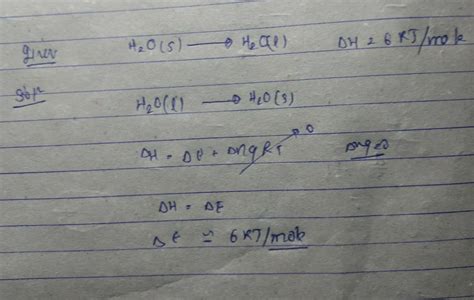 given H₂O(s) → H₂O(l) ΔH = 6 KJ/mole
Solⁿ
H₂O(l) → H₂O(s)
ΔH = ΔE + ΔngRT 0 Δng=0
ΔH = ΔE
ΔE ≈ 6 KJ/mole